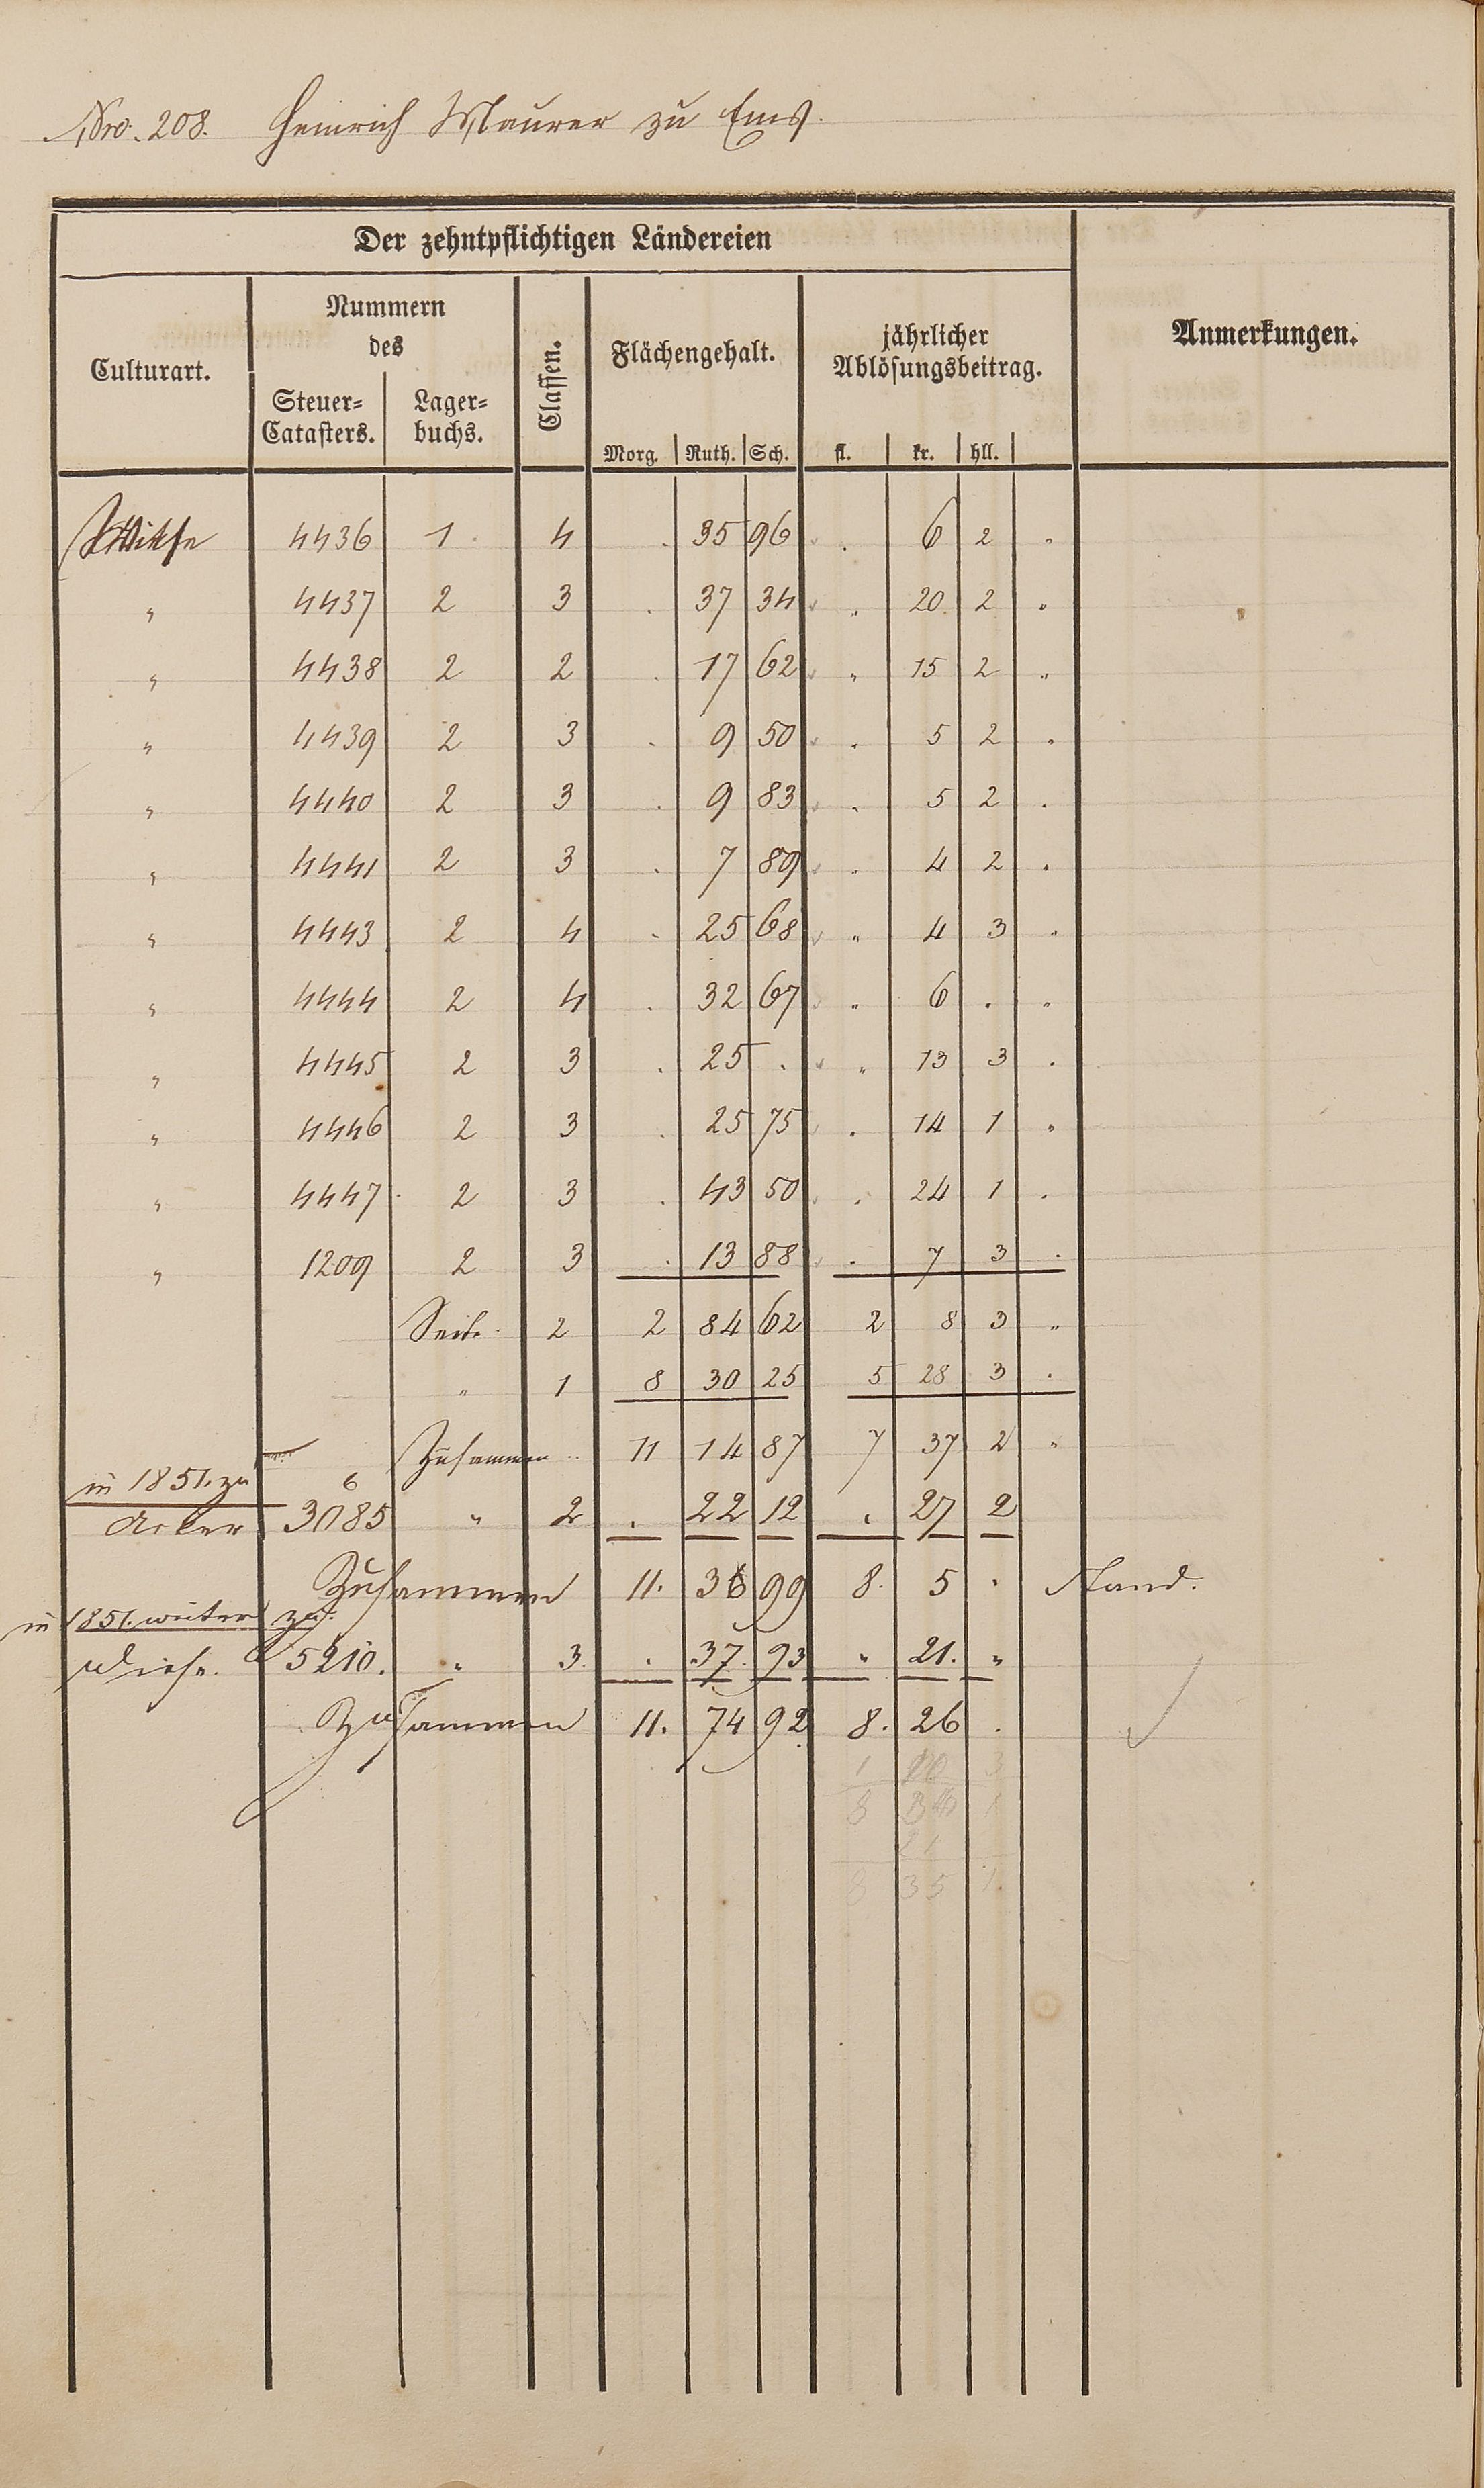 Nro. 208. Heinrich Maurer zu Ems.
Der zehntpflichtigen Ländereien
Anmerkungen.
Culturart.
Nummern
des
Steuer= Catasters.
Lager= buchs.
Classen.
Flächengehalt.
Morg. Ruth. Sch.
jährlicher
Ablösungsbeitrag.
fl. kr. hll.
Wiese 4436 1 4 . 35 96 . 6 2 "
" 4437 2 3 . 37 34 " 20 2 "
" 4438 2 2 . 17 62 " 15 2 "
" 4439 2 3 . 9 50 . 5 2 "
" 4440 2 3 . 9 83 . 5 2 .
" 4441 2 3 . 7 89 . 4 2 .
" 4443 2 4 . 25 68 " 4 3 "
" 4444 2 4 . 32 67 " 6 . "
" 4445 2 3 . 25 . " 13 3 .
" 4446 2 3 . 25 75 . 14 1 "
" 4447 2 3 . 43 50 . 24 1 .
" 1209 2 3 . 13 88 . 7 3 .
Seite 2 2 84 62 2 8 3 "
" 1 8 30 25 5 28 3 .
Zusammen 11 14 87 7 37 2 "
in 1851. zu
6
Acker 3085 " 2 . 22 12 . 27 2
Zusammen 11. 36 99 8. 5 . Stand.
in 1851. weiter zu.
Wiese. 5210. " 3. . 37. 93 " 21. "
Zusammen 11. 74 92 8. 26 .
21
8 35 1.